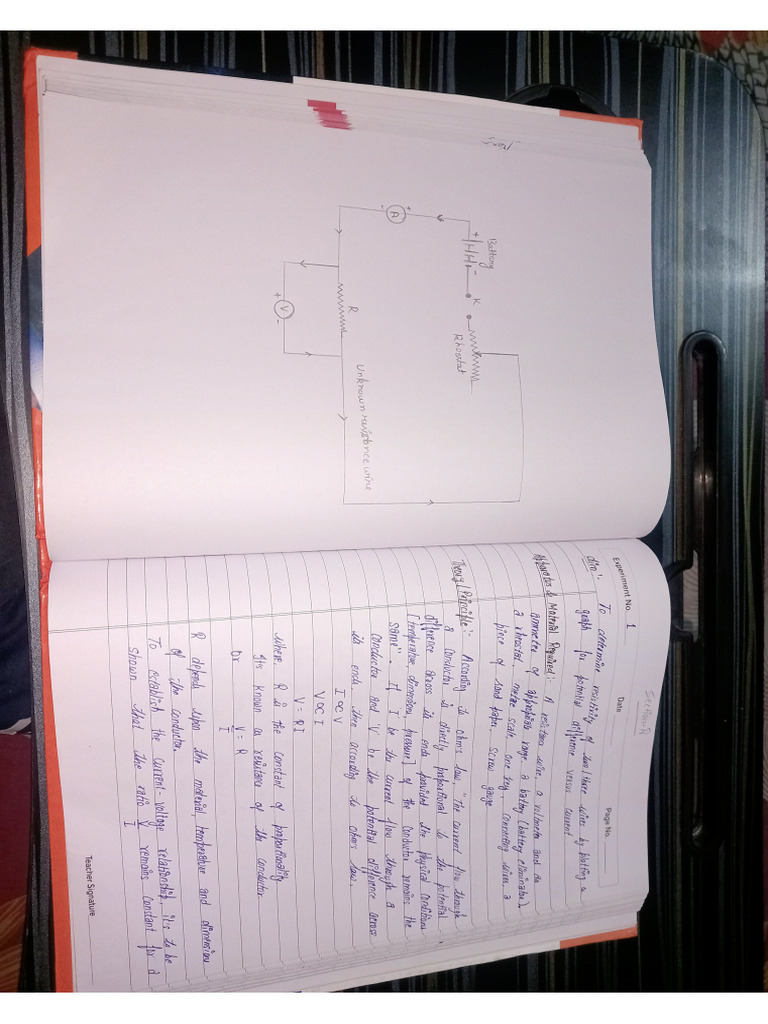 Battery
+
-
K
Rhostat
+
A
-
R
Unknown resistance wire
+
V
-
Section A
Experiment No. 1
Date
Page No.
Aim:- To determine resistivity of two/three wires by plotting a
graph for potential difference versus current.
Apparatus & Material Required:- A resistance wire, a voltmeter and an
ammeter of appropriate range, a battery (battery eliminator)
a rheostat, metre scale, one key, connecting wires, a
piece of sand paper, screw gauge
Theory/Principle:- According to ohms law, "The current flow through
a conductor is directly proportional to the potential
difference across its ends provided the physical conditions
[temperature, dimensions, pressure] of the conductor remains the
same". If 'I' be the current flow through a
conductor and 'V' be the potential difference across
its ends, then according to ohm's law.
I ∝ V
V ∝ I
V = RI
where, R is the constant of proportionality
It is known as resistance of the conductor
or V/I = R
R depends upon the material, temperature and dimension
of the conductor.
To establish the current-voltage relationship, it is to be
Shown that the ratio V/I remains constant for a
Teacher Signature